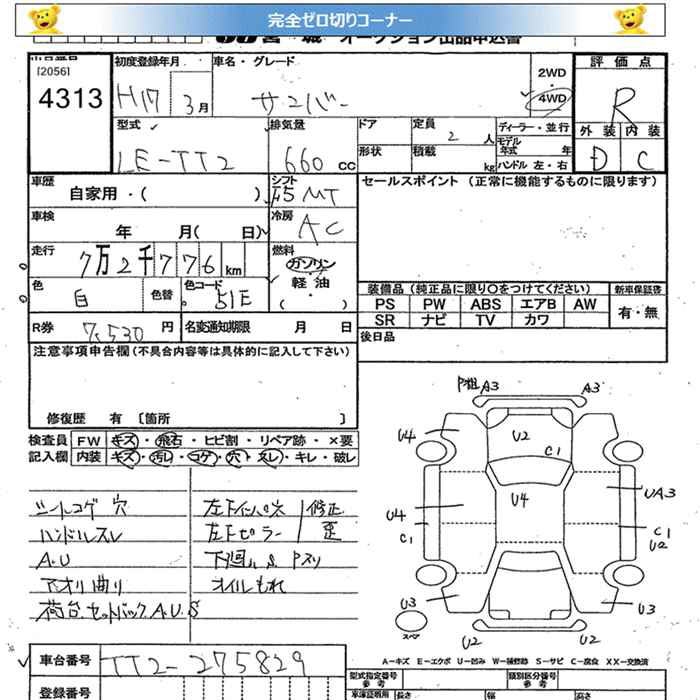 完全ゼロ切りコーナー
オークション出品申込書
[2056]
4313
初度登録年月
H17 3月
車名・グレード
サンバー
2WD
・
4WD
評価点
R
外装 内装
D C
型式
LE-TT2
排気量
660 CC
ドア
定員 2 人
ディーラー・並行
モデル年式 年
形状
積載 kg
ハンドル 左・右
車歴
自家用・( )
シフト
F5 MT
セールスポイント (正常に機能するものに限ります)
車検
年 月( 日)
冷房
AC
走行
7万2千776km
燃料
ガソリン
・
軽油
( ・ )
色
白
色替
色コード
51E
装備品(純正品に限り○をつけてください)
新車保証書
PS PW ABS エアB AW
有・無
SR ナビ TV カワ
R券
7,530円
名変通知期限 月 日
後日品
注意事項申告欄(不具合内容等は具体的に記入して下さい)
修復歴 有 [箇所 ]
検査員記入欄
FW キズ・飛石・ヒビ割・リペア跡・×要
内装 キズ・汚レ・コゲ・穴・スレ・キレ・破レ
シートコゲ 穴
ハンドルスレ
A.U
アオリ曲り
荷台、セットバック A.U.S
左下インパネ 修正
左Fピラー 歪
下廻り S Pスリ
オイルもれ
P粗 A3 A3
U4 U2 C1
U4 U4 UA3
C1 C1 U2
U3 U3
スペア
U2 U2
A-キズ E-エクボ U-凹み W-補修跡 S-サビ C-腐食 XX-交換済
車台番号
TT2-275829
登録番号
型式指定番号
参考
類別区分番号
参考
車庫証明用
長さ
幅
高さ